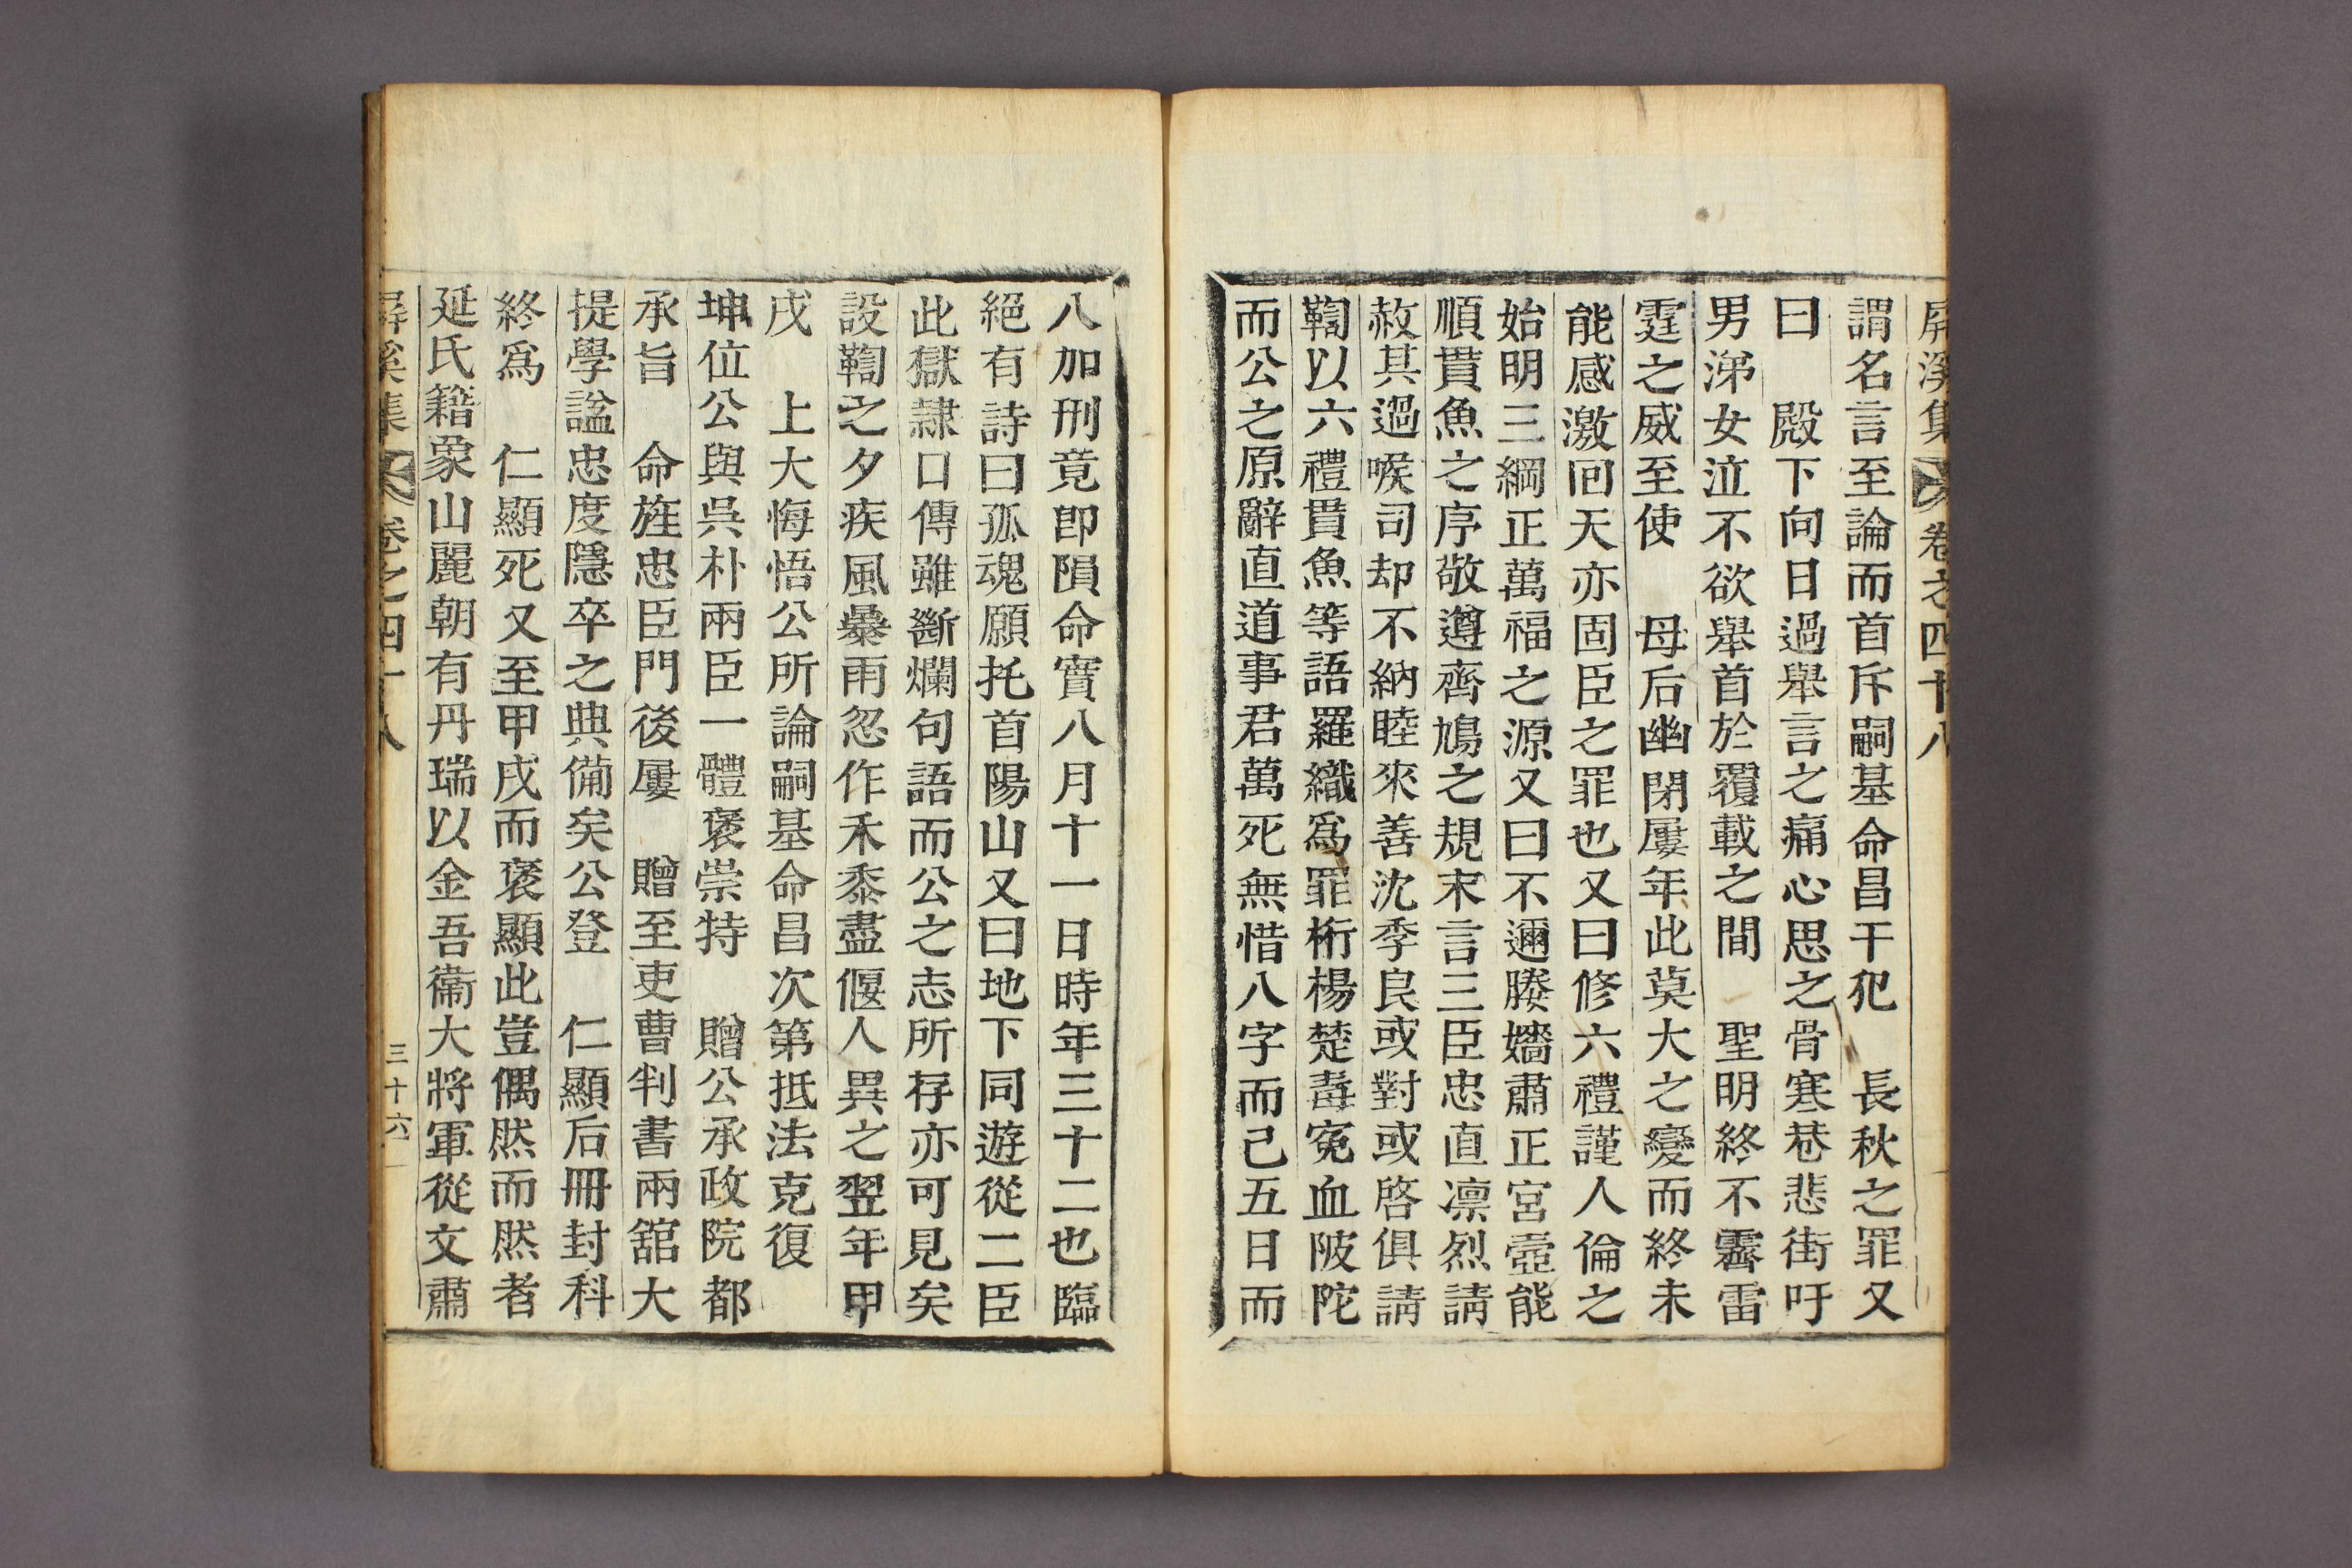 屏溪集 卷之四十八
謂名言至論而首斥嗣基命昌干犯 長秋之罪又
曰 殿下向日過舉言之痛心思之骨寒巷悲街吁
男涕女泣不欲舉首於覆載之間 聖明終不霽雷
霆之威至使 母后幽閉屢年此莫大之變而終未
能感激回天亦固臣之罪也又曰修六禮謹人倫之
始明三綱正萬福之源又曰不邇媵嬙肅正宮壼能
順貫魚之序敬遵齊鳩之規末言三臣忠直凛烈請
赦其過喉司却不納睦來善沈季良或對或啓俱請
鞫以六禮貫魚等語羅織爲罪桁楊楚毒冤血陂陀
而公之原辭直道事君萬死無惜八字而已五日而
八加刑竟卽隕命實八月十一日時年三十二也臨
絕有詩曰孤魂願托首陽山又曰地下同遊從二臣
此獄隷口傳雖斷爛句語而公之志所存亦可見矣
設鞫之夕疾風暴雨忽作禾黍盡偃人異之翌年甲
戌 上大悔悟公所論嗣基命昌次第抵法克復
坤位公與吳朴兩臣一體褒崇特 贈公承政院都
承旨 命旌忠臣門後屢 贈至吏曹判書兩舘大
提學諡忠度隱卒之典備矣公登 仁顯后冊封科
終爲 仁顯死又至甲戌而褒顯此豈偶然而然者
延氏籍象山麗朝有丹瑞以金吾衞大將軍從文肅
屏溪集 卷之四十八 三十六